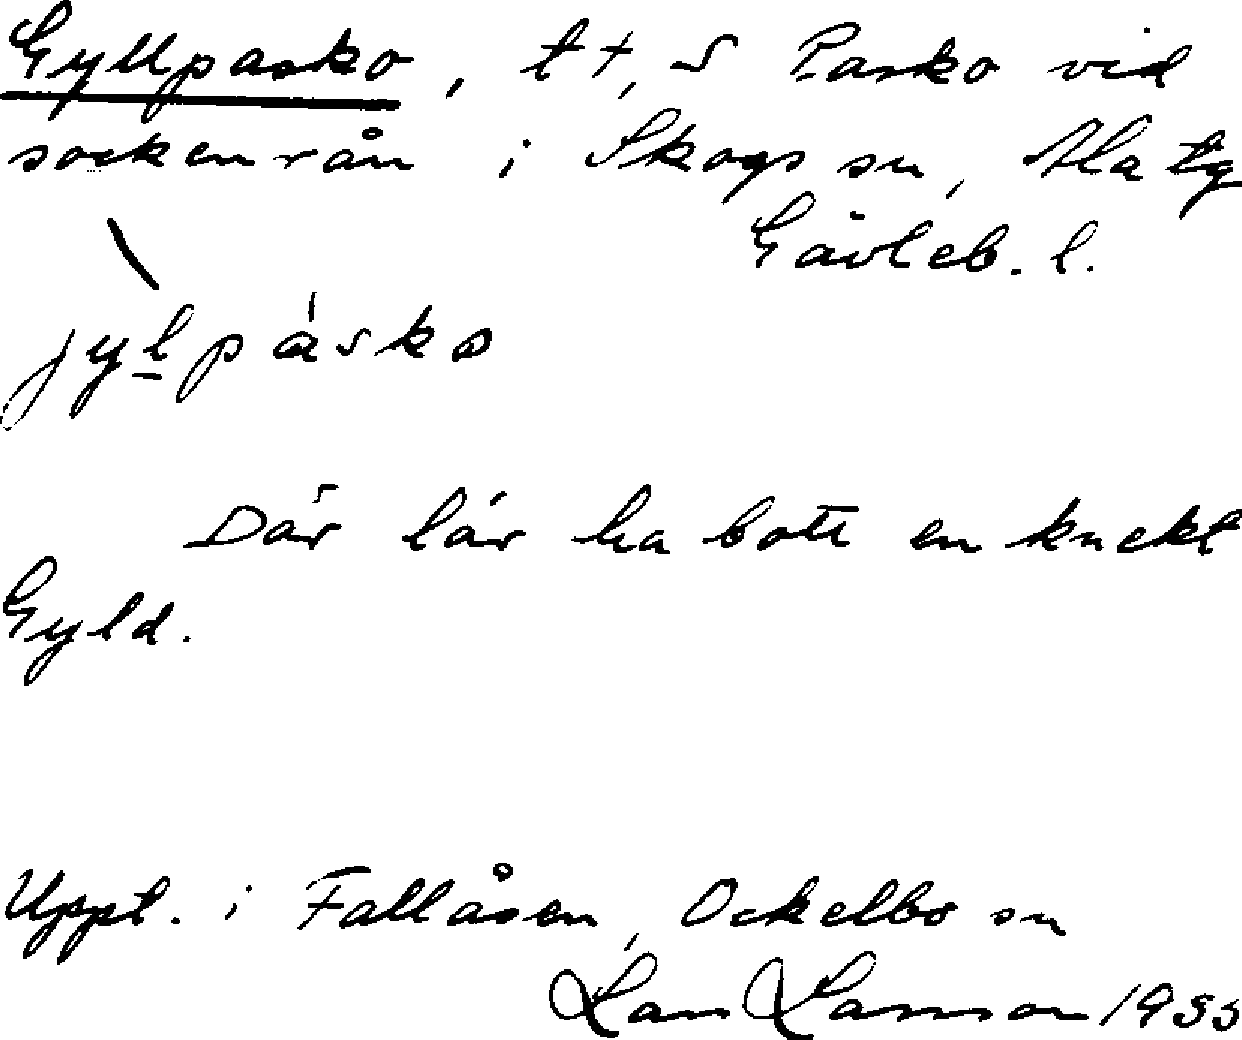 Gyllpasko, tt, S Pasko vid
sockenrån i Skogs sn, Ala tg
Gävleb. l.
jylpásko
Där lär ha bott en knekt
Gyld.
Uppt. i Fallåsen, Ockelbo sn
Lars Larsson 1933